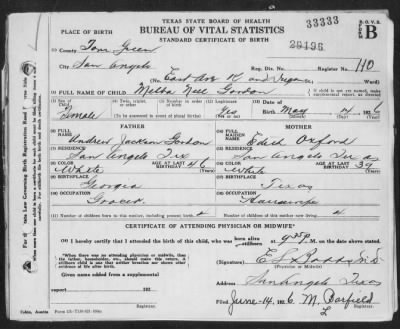 TEXAS STATE BOARD OF HEALTH
33333
B.O.V.S.
B
PLACE OF BIRTH
BUREAU OF VITAL STATISTICS
STANDARD CERTIFICATE OF BIRTH
29196
County Tom Green
City San Angelo Reg. Dis. No. Register No. 110
(No. East Ave K and Ward)
FULL NAME OF CHILD Melba Nell Gordon
Sex of Child Female
Twin, triplet, or other
Number in order of birth
(To be answered in event of plural births)
Legitimate Yes
Date of birth May 4 1926
FATHER
MOTHER
FULL NAME Andrew Jackson Gordon
FULL NAME Edith Oxford
RESIDENCE San Angelo Tex
RESIDENCE San Angelo Tex
COLOR White AGE AT LAST BIRTHDAY 46
COLOR White AGE AT LAST BIRTHDAY 39
BIRTHPLACE Georgia
BIRTHPLACE Texas
OCCUPATION Grocer
OCCUPATION Housewife
Number of children born to this mother, including present birth
CERTIFICATE OF ATTENDING PHYSICIAN OR MIDWIFE*
I hereby certify that I attended the birth of this child, who was born alive at 9:35 P. M. on the date above stated.
*When there was no attending physician or midwife, then the father, householder, etc., should make this return. A stillborn child is one that neither breathes nor shows other evidence of life after birth.
(Signature)
(Physician or Midwife)
Given name added from a supplemental report 192
Address San Angelo Texas
Registrar.
Filed June-14, 1926 M. Barfield
Registrar.